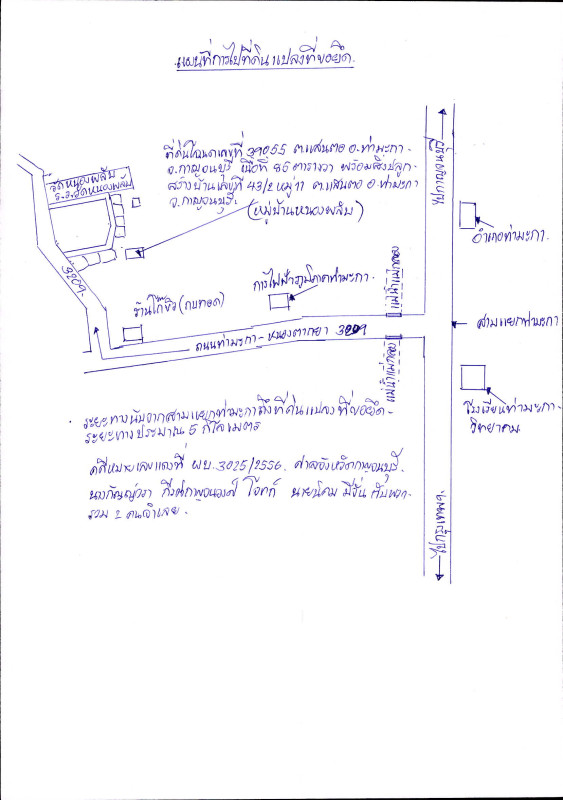 แผนที่การไปที่ดินแปลงที่ขอยึด.
ที่ดินโฉนดเลขที่ 39055 ต.แสนตอ อ.ท่ามะกา.
จ.กาญจนบุรี เนื้อที่ 85 ตารางวา พร้อมสิ่งปลูก-
สร้างบ้านเลขที่ 43/2 หมู่ 11 ต.แสนตอ อ.ท่ามะกา
จ.กาญจนบุรี.
(หมู่บ้านหนองพลับ)
วัดหนองพลับ
ร.ร.วัดหนองพลับ
ไปกาญจนบุรี
อำเภอท่ามะกา.
3209.
ร้านโกซิว (กบทอด)
การไฟฟ้าภูมิภาคท่ามะกา.
แม่น้ำแม่กลอง
สามแยกท่ามะกา
ถนนท่ามะกา - หนองตากยา 3209
แม่น้ำแม่กลอง
โรงเรียนท่ามะกา-
วิทยาคม
ระยะทางนับจากสามแยกท่ามะกาถึงที่ดินแปลงที่ขอยึด-
ระยะทางประมาณ 5 กิโลเมตร
คดีหมายเลขแดงที่ ผบ. 3025/2556. ศาลจังหวัดกาญจนบุรี.
โจทก์ นายนิคม มีชั่น กับพวก-
รวม 2 คนจำเลย.
ไปกรุงเทพฯ.